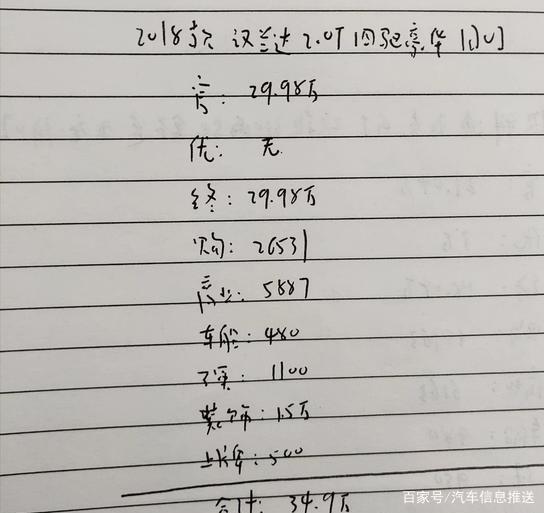 2018款 汉兰达 2.0T 四驱豪华 7座
官: 29.98万
优: 无
终: 29.98万
购: 26531
商业: 5887
车船: 480
交强: 1100
装饰: 1.5万
上牌: 500
合计: 34.9万
百家号/汽车信息推送